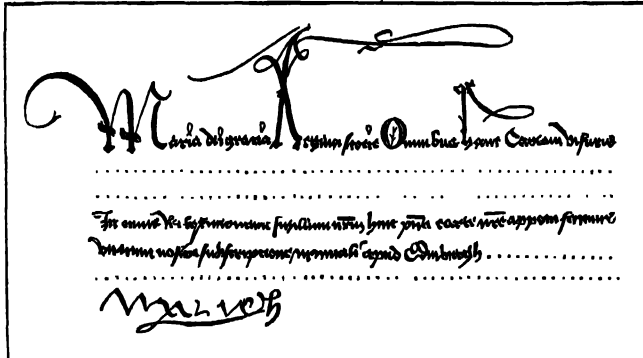 Maria dei gratia Regina scotie Omnibus hanc Cartam visuris
In cuius Rei testimonium sigillum nrm̄ huic pn̄ti carte nr̄e appendi fecimus
vna cum nostra subscriptione manuali apud Edinburgh